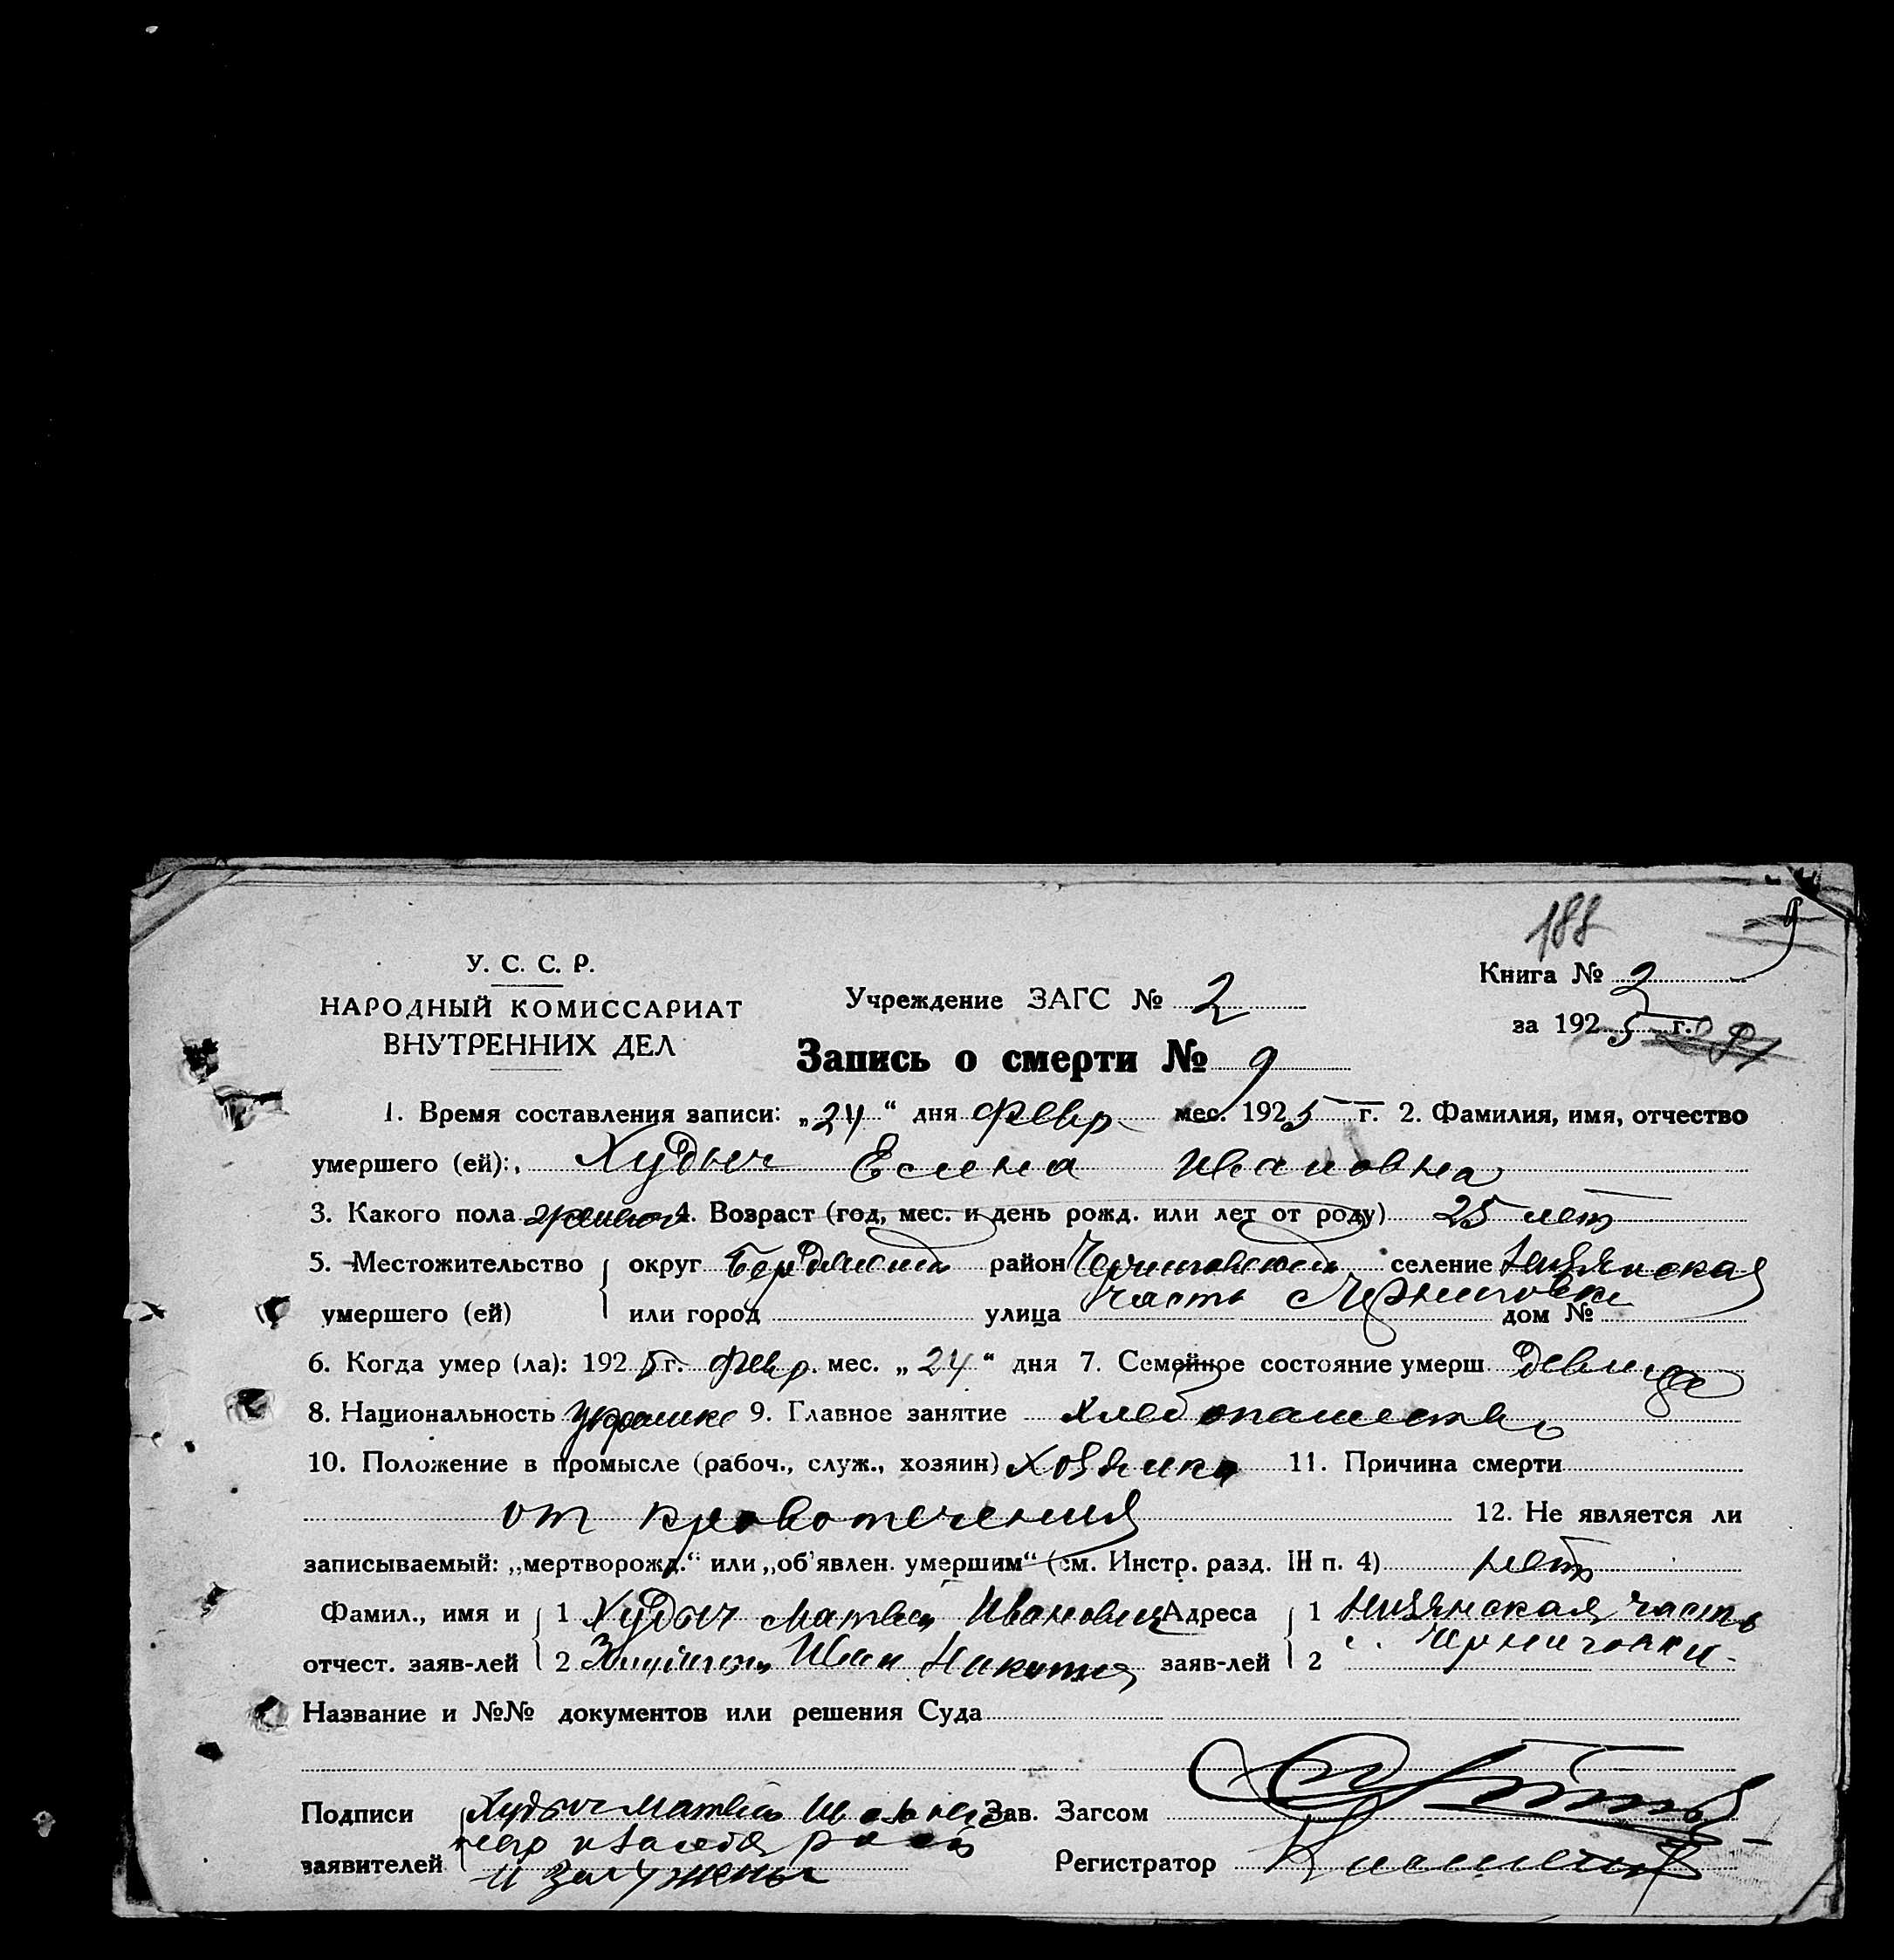 188
9
У. С. С. Р.
НАРОДНЫЙ КОМИССАРИАТ
ВНУТРЕННИХ ДЕЛ
Учреждение ЗАГС № 2
Книга № 2
за 1925 г.
Запись о смерти № 9
1. Время составления записи: „24“ дня февр. мес. 1925 г. 2. Фамилия, имя, отчество
умершего (ей): Худыч Елена Ивановна
3. Какого пола женског 4. Возраст (год, мес. и день рожд. или лет от роду) 25 лет
5. Местожительство округ район Черниговский селение Низянская
умершего (ей) или город улица часть Черниговки дом №
6. Когда умер (ла): 1925 г. февр. мес. „24“ дня 7. Семейное состояние умерш. девица
8. Национальность украинка 9. Главное занятие хлебопашество
10. Положение в промысле (рабоч., служ., хозяин) хозяйка 11. Причина смерти
от кровотечения 12. Не является ли
записываемый: „мертворожд.“ или „об'явлен. умершим“ (см. Инстр. разд. III п. 4) нет
Фамил., имя и 1 Худыч Матвей Иванович Адреса 1 Низянская часть
отчест. заяв-лей 2 Иван заяв-лей 2 с. Черниговки
Название и №№ документов или решения Суда
Подписи Худыч Матвей Зав. Загсом
заявителей Регистратор